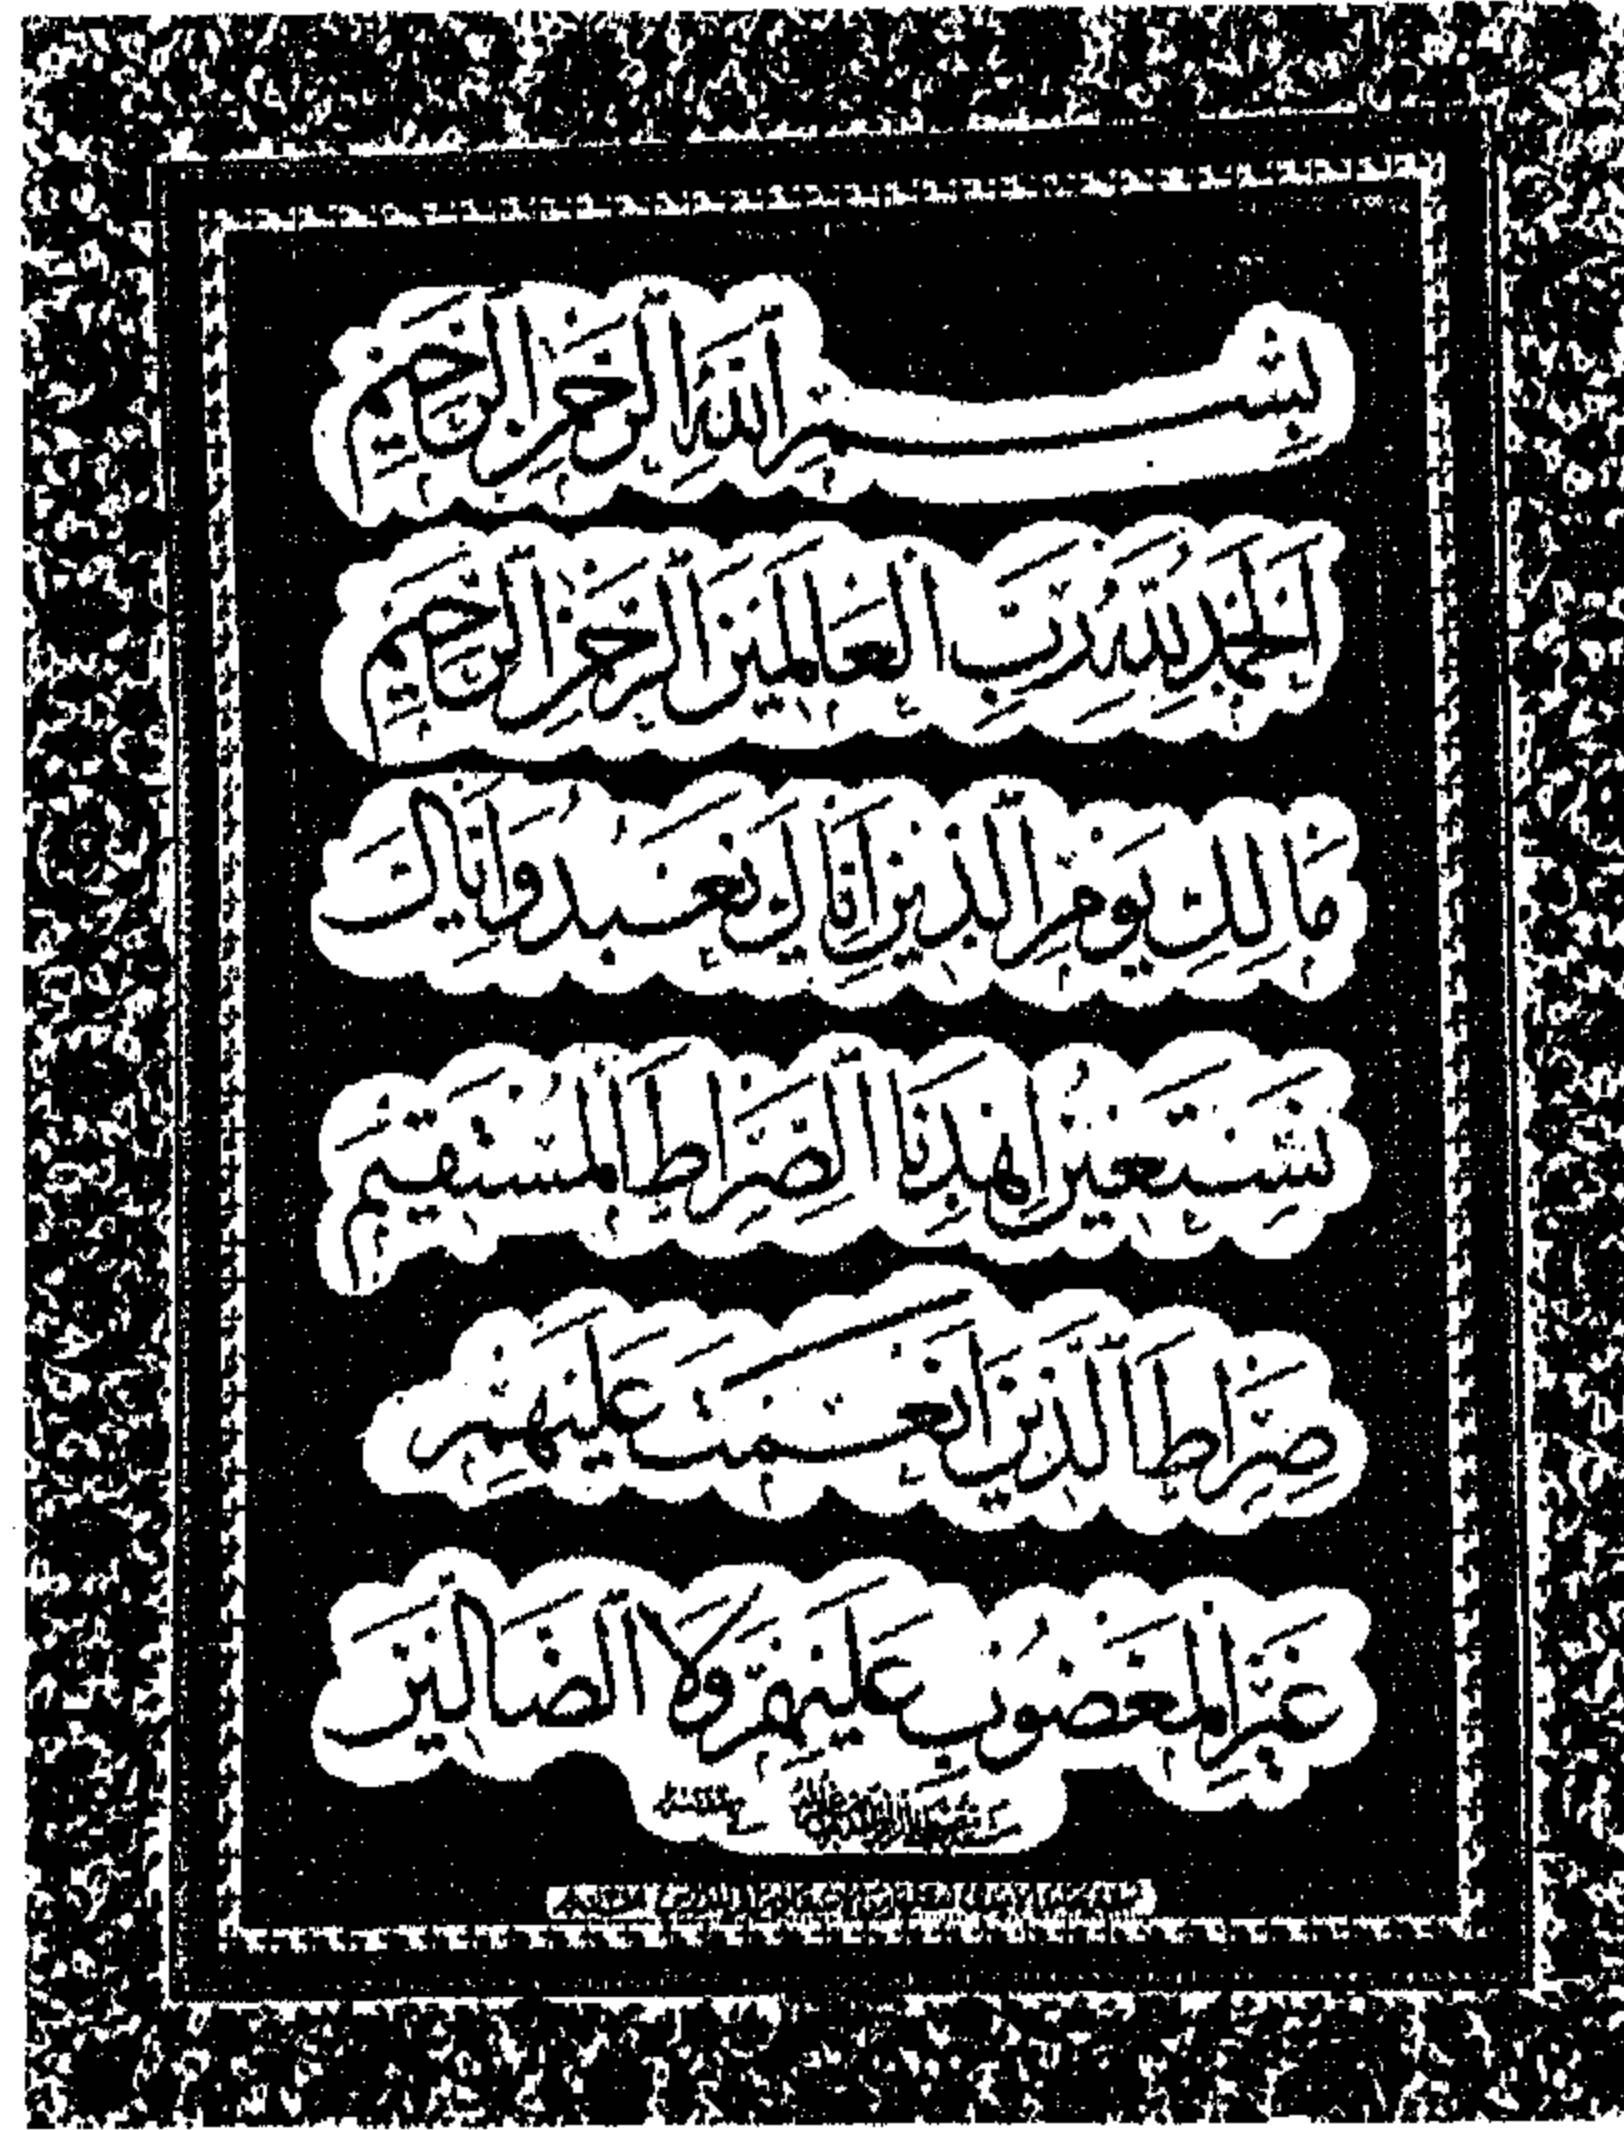 بِسْمِ اللَّهِ الرَّحْمَٰنِ الرَّحِيمِ
الْحَمْدُ لِلَّهِ رَبِّ الْعَالَمِينَ الرَّحْمَٰنِ الرَّحِيمِ
مَالِكِ يَوْمِ الدِّينِ إِيَّاكَ نَعْبُدُ وَإِيَّاكَ
نَسْتَعِينُ اهْدِنَا الصِّرَاطَ الْمُسْتَقِيمَ
صِرَاطَ الَّذِينَ أَنْعَمْتَ عَلَيْهِمْ
غَيْرِ الْمَغْضُوبِ عَلَيْهِمْ وَلَا الضَّالِّينَ